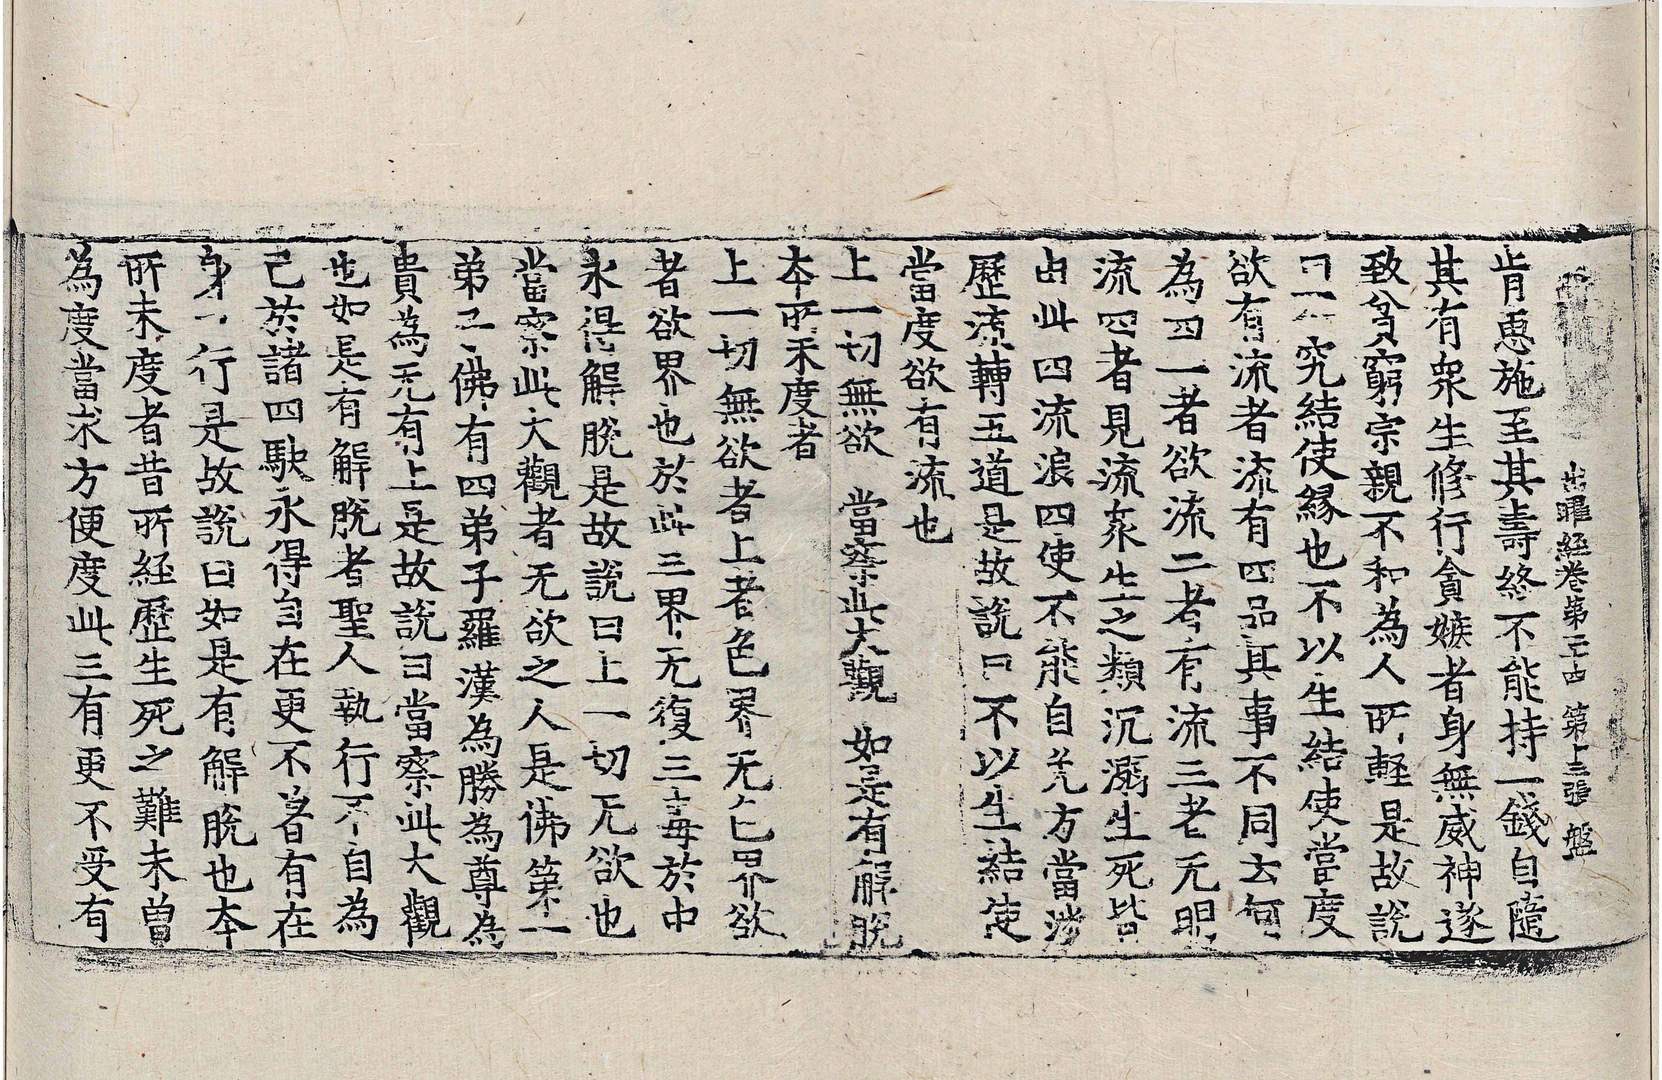 出曜經卷第二十四 第十三張 盤
肯惠施至其壽終不能持一錢自隨
其有衆生修行貪嫉者身無威神遂
致貧窮宗親不和為人所軽是故說
曰 究結使縁也不以生結使當度
欲有流者流有四品其事不同云何
為四一者欲流二者有流三者无明
流四者見流流衆生之類沉溺生死皆
由此四流浪四使不能自免方當涉
歷流轉五道是故說曰不以生結使
當度欲有流也
上一切無欲 當察此大觀 如是有解脫
本所未度者
上一切無欲者上者色界无色界欲
者欲界也於此三界无復三毒於中
永得解脫是故說曰上一切无欲也
當察此大觀者无欲之人是佛第一
弟子佛有四弟子羅漢為勝為尊為
貴為无有上是故說曰當察此大觀
也如是有解脫者聖人執行不自為
己於諸四駃永得自在更不著有在
身 行是故說曰如是有解脫也本
所未度者昔所経歷生死之難未曽
為度當求方便度此三有更不受有